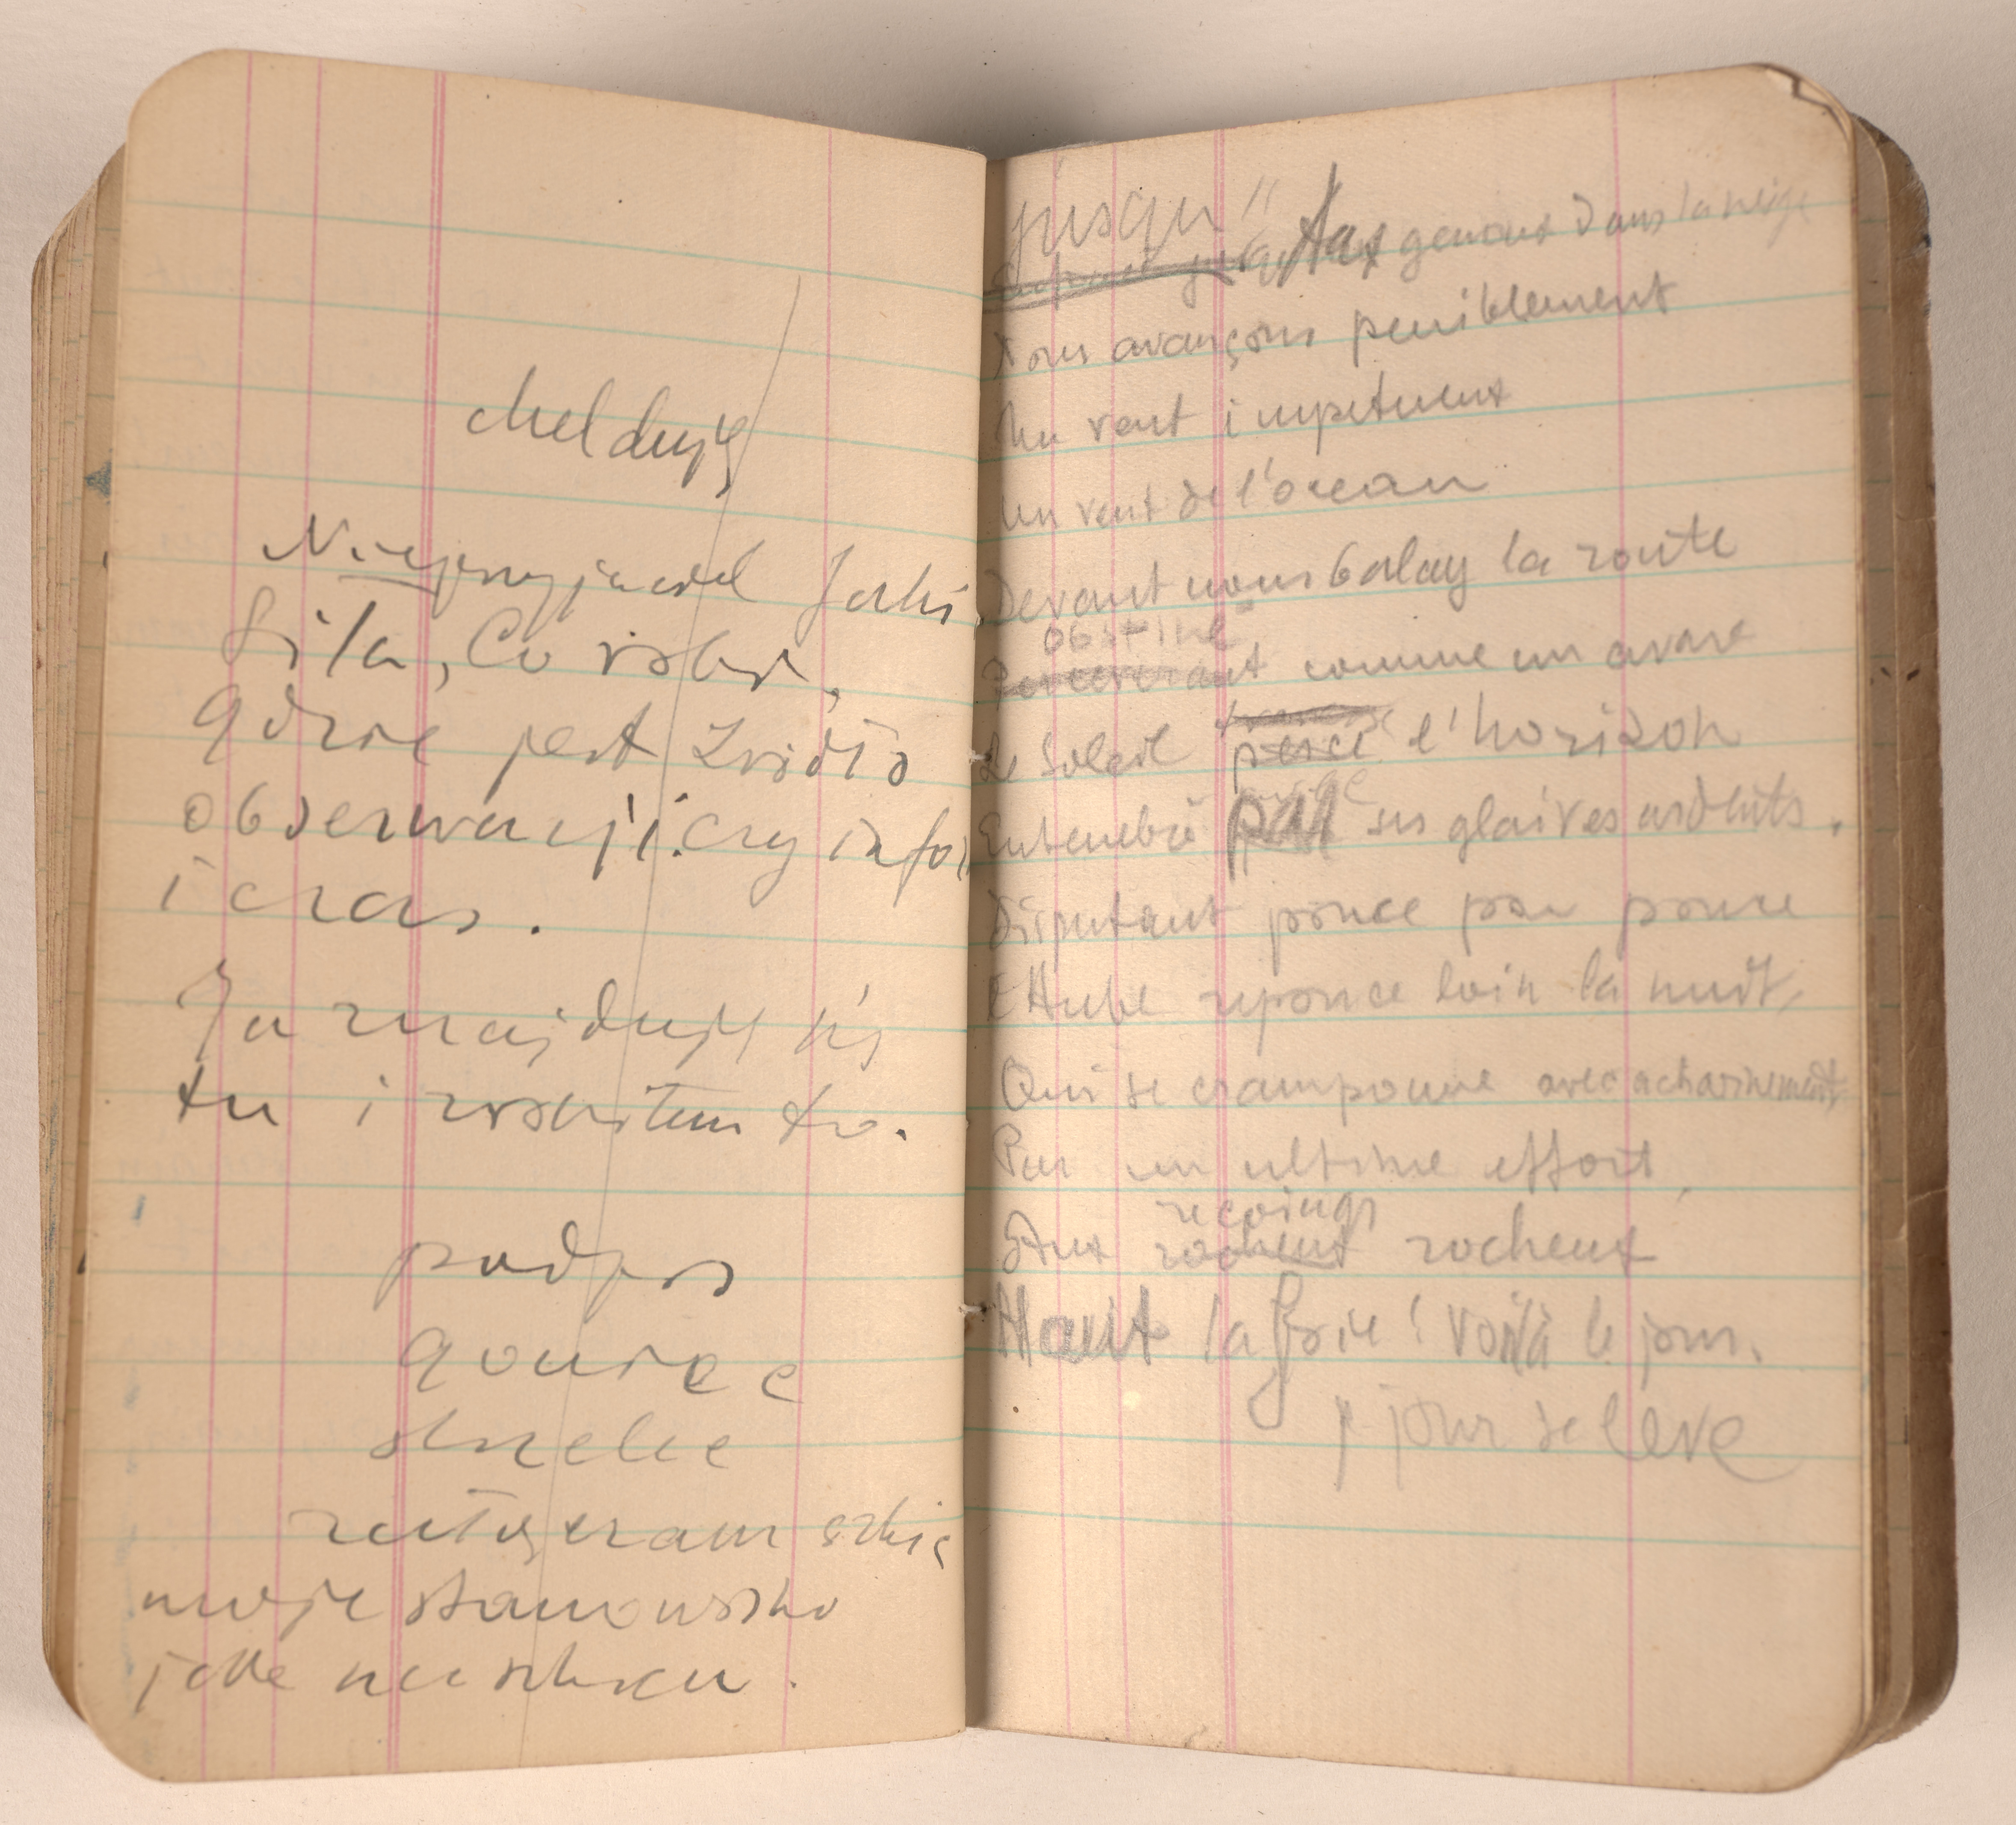 Melduję
Nieprzyjaciel Jaki
Siła, Co robi,
gdzie jest źródło
obserwacji. czy infor
i czas.
Ja znajduję się
tu i zrobiłem to.
podpis
goniec
strzelec
załączam szkic
moje stanowisko
jest na szkicu.
jusqu'
Aux genoux dans la neige
Nous avançons peniblement
Un vent impetueux
Un vent de l'ocean
Devant nous balay la route
obstiné
Perseverant comme un avare
traverse
Le Soleil perce l'horizon
Entenebré par ses glaives ardents.
Disputant pouce par pouce
L'Aube repouce loin la nuit,
Qui se cramponne avec acharnement
Par un ultime effort,
recoings
Aux rocheux rocheux
Haut la Joie! Voilà le jour.
jour se leve